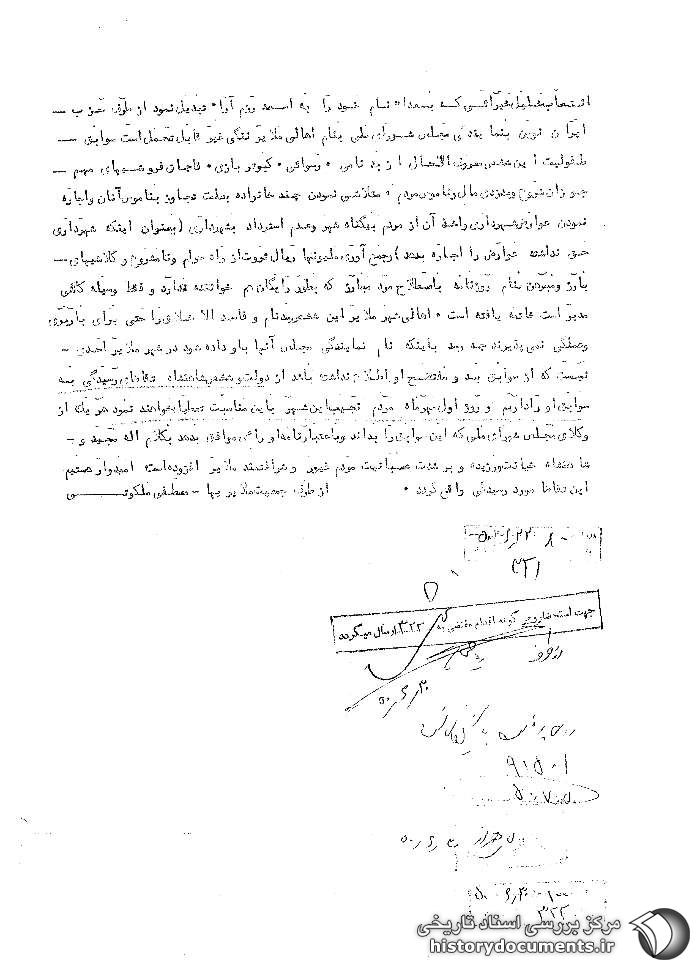 انتصاب خلیل خیراتی که بعدا" نام خود را به اسعد رزم آرا" تبدیل نمود از طرف حزب —
ایران نوین بنمایندگی مجلس شورای ملی بنام اهالی ملایر ننگی غیر قابل تحمل است سوابق —
طفولیت این عنصر معروف الحال از بدنامی ، رسوائی ، کبوتر بازی ، قاچاق فروشیهای مهم —
چو از آن شروع و بدزدی مال و ناموس مردم ، متلاشی نمودن چند خانواده بعلت تجاوز بناموس آنان و اجاره
نمودن عوارض شهرداری واخذ آن از مردم بیگناه شهر وعدم استرداد بشهرداری (بعنوان اینکه شهرداری
حق نداشته عوارض را اجاره بدهد) وجمع آوری ملیونها ریال ثروت از راه حرام ونامشروع و کلاشیهای —
بارز ومبردن بنام روزنامه باصطلاح مرد مبارز که بطور رایگان هم خواننده ندارد و فقط وسیله کلاشی
مدیر است خاتمه یافته است ، اهالی شهر ملایر این عنصر بدنام و فاسد الاخلاق را حتی برای باربری
وحمالی نمی پذیرند چه رسد باینکه نام نمایندگی مجلس آنها باو داده شود در شهر ملایر احدی —
نیست که از سوابق بد و مفتضح او اطلاع نداشته باشد از دولت و شخص شاهنشاه تقاضای رسیدگی به
سوابق او را داریم و روز اول مهرماه مردم نجیب این شهر باین مناسبت تعطیل خواهند نمود هر یک از
وکلای مجلس شورای ملی که این سوابق را بداند وباعتبارنامه او رای موافق بدهد بکلام اله مجید و —
شاهنشاه خیانت ورزیده و بر شدت عصبانیت مردم غیور و شرافتمند ملایر افزوده است امیدوار هستیم
این تقاضا مورد رسیدگی واقع گردد . از طرف جمعیت ملایریها — مصطفی ملکوتی
۳۲۱
جهت استحضار و هر گونه اقدام مقتضی به ۳۲۲ ارسال میگردد
۵۰/۶/۳۰
۹۱۵۰۱
۳۲۲
مرکز بررسی اسناد تاریخی
historydocuments.ir